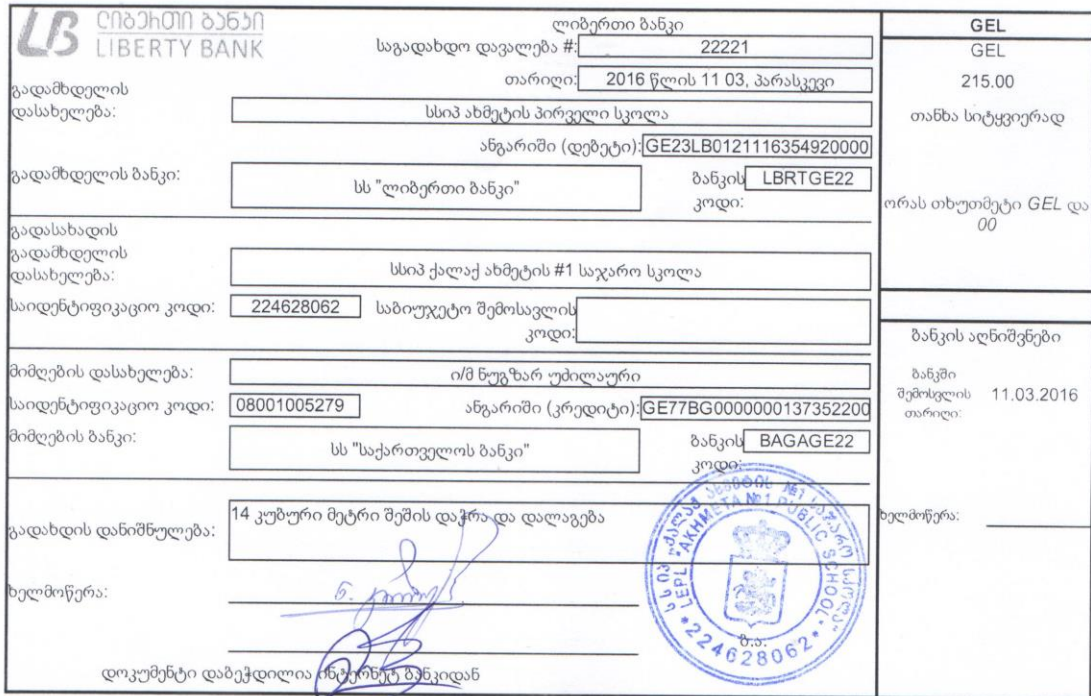 ლიბერთი ბანკი
LIBERTY BANK
ლიბერთი ბანკი
საგადახდო დავალება #: 22221
თარიღი: 2016 წლის 11 03, პარასკევი
გადამხდელის
დასახელება: სსიპ ახმეტის პირველი სკოლა
ანგარიში (დებეტი): GE23LB0121116354920000
გადამხდელის ბანკი: სს "ლიბერთი ბანკი" ბანკის კოდი: LBRTGE22
გადასახადის
გადამხდელის
დასახელება: სსიპ ქალაქ ახმეტის #1 საჯარო სკოლა
საიდენტიფიკაციო კოდი: 224628062 საბიუჯეტო შემოსავლის
კოდი:
მიმღების დასახელება: ი/მ ნუგზარ უძილაური
საიდენტიფიკაციო კოდი: 08001005279 ანგარიში (კრედიტი): GE77BG0000000137352200
მიმღების ბანკი: სს "საქართველოს ბანკი" ბანკის კოდი: BAGAGE22
გადახდის დანიშნულება: 14 კუბური მეტრი შეშის დაჭრა და დალაგება
ხელმოწერა:
ბ.ა.
დოკუმენტი დაბეჭდილია ინტერნეტ ბანკიდან
GEL
GEL
215.00
თანხა სიტყვიერად
ორას თხუთმეტი GEL და
00
ბანკის აღნიშვნები
ბანკში
შემოსვლის 11.03.2016
თარიღი:
ხელმოწერა:
სსიპ "ქალაქ ახმეტის №1 საჯარო სკოლა"
LEPL "AKHMETA №1 PUBLIC SCHOOL"
* 224628062 *